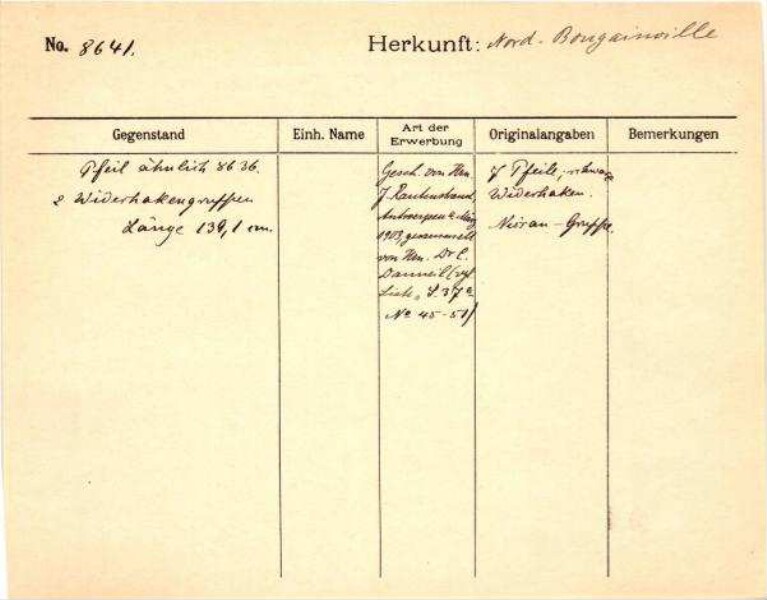 No. 8641.
Herkunft: Nord-Bougainville
Gegenstand
Einh. Name
Art der Erwerbung
Originalangaben
Bemerkungen
Pfeil ähnlich 8636.
2 Widerhakengruppen
Länge 139,1 cm.
Gesch. von Hrn.
J. Rautenstrauch,
Antwerpen März
1903, gesammelt
von Hrn. Dr C.
Danneil (vgl
Liste, S. 37a
No 45-51)
7 Pfeile, schwarze
Widerhaken.
Nissan-Gruppe.